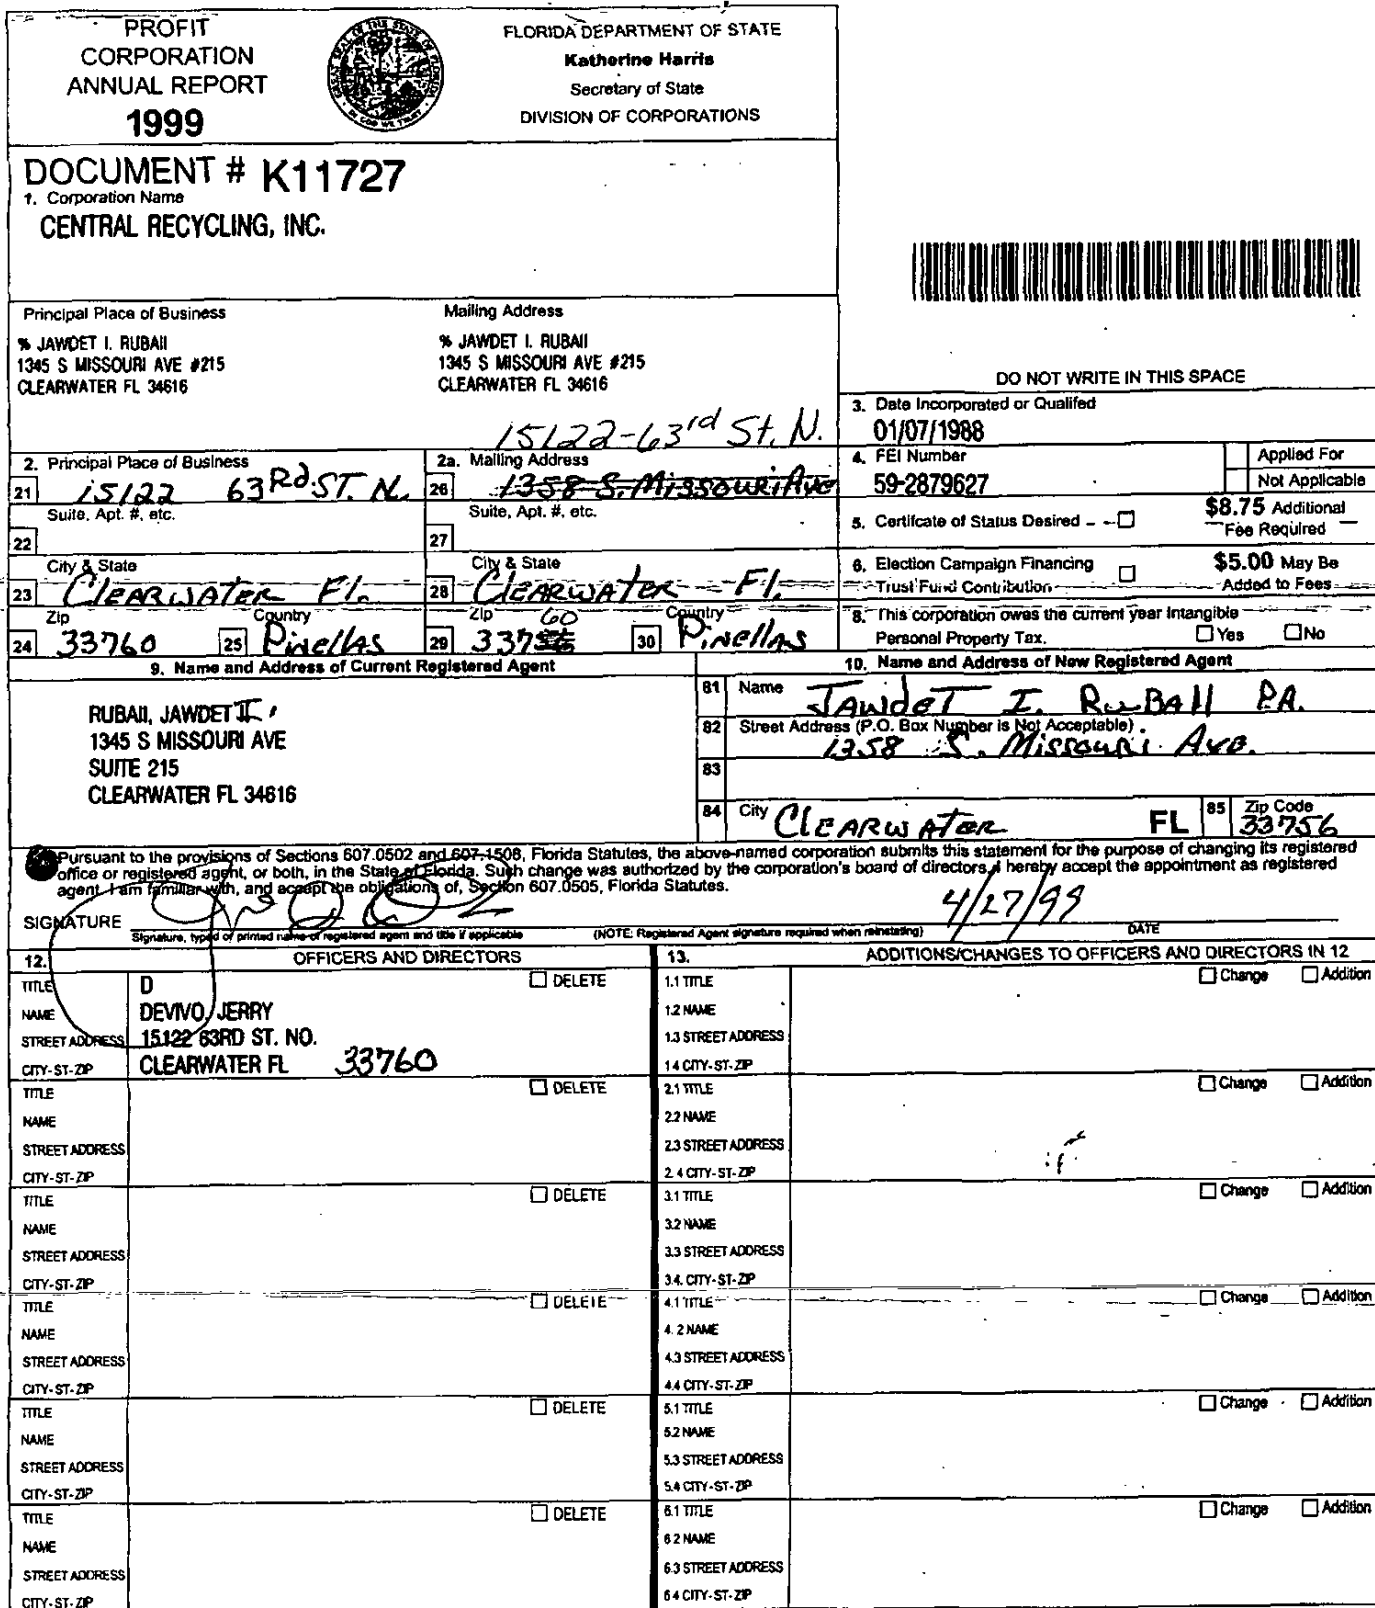 PROFIT
CORPORATION
ANNUAL REPORT
1999
FLORIDA DEPARTMENT OF STATE
Katherine Harris
Secretary of State
DIVISION OF CORPORATIONS
DOCUMENT # K11727
1. Corporation Name
CENTRAL RECYCLING, INC.
Principal Place of Business
% JAWDET I. RUBAII
1345 S MISSOURI AVE #215
CLEARWATER FL 34616
Mailing Address
% JAWDET I. RUBAII
1345 S MISSOURI AVE #215
CLEARWATER FL 34616
DO NOT WRITE IN THIS SPACE
3. Date Incorporated or Qualifed
01/07/1988
15122-63rd St. N.
2. Principal Place of Business
21 15122 63Rd ST. N.
2a. Mailing Address
26 1358 S. Missouri Ave
4. FEI Number
59-2879627
Applied For
Not Applicable
Suite, Apt. #, etc.
22
Suite, Apt. #, etc.
27
5. Certifcate of Status Desired
$8.75 Additional
Fee Required
City & State
23 Clearwater Fl.
City & State
28 Clearwater Fl.
6. Election Campaign Financing
Trust Fund Contribution
$5.00 May Be
Added to Fees
Zip
24 33760
Country
25 Pinellas
Zip 60
29 33756
Country
30 Pinellas
8. This corporation owes the current year Intangible
Personal Property Tax. Yes No
9. Name and Address of Current Registered Agent
RUBAII, JAWDET I.
1345 S MISSOURI AVE
SUITE 215
CLEARWATER FL 34616
10. Name and Address of New Registered Agent
81 Name JAWdET I. RuBAII P.A.
82 Street Address (P.O. Box Number is Not Acceptable)
1358 S. Missouri Ave.
83
84 City Clearwater FL 85 Zip Code
33756
Pursuant to the provisions of Sections 607.0502 and 607.1508, Florida Statutes, the above-named corporation submits this statement for the purpose of changing its registered
office or registered agent, or both, in the State of Florida. Such change was authorized by the corporation's board of directors. I hereby accept the appointment as registered
agent. I am familiar with, and accept the obligations of, Section 607.0505, Florida Statutes.
SIGNATURE
4/27/99
Signature, typed or printed name of registered agent and title if applicable
(NOTE: Registered Agent signature required when reinstating)
DATE
12. OFFICERS AND DIRECTORS
TITLE D DELETE
NAME DEVIVO, JERRY
STREET ADDRESS 15122 63RD ST. NO.
CITY-ST-ZIP CLEARWATER FL 33760
TITLE DELETE
NAME
STREET ADDRESS
CITY-ST-ZIP
TITLE DELETE
NAME
STREET ADDRESS
CITY-ST-ZIP
TITLE DELETE
NAME
STREET ADDRESS
CITY-ST-ZIP
TITLE DELETE
NAME
STREET ADDRESS
CITY-ST-ZIP
TITLE DELETE
NAME
STREET ADDRESS
CITY-ST-ZIP
13. ADDITIONS/CHANGES TO OFFICERS AND DIRECTORS IN 12
1.1 TITLE Change Addition
1.2 NAME
1.3 STREET ADDRESS
1.4 CITY-ST-ZIP
2.1 TITLE Change Addition
2.2 NAME
2.3 STREET ADDRESS
2.4 CITY-ST-ZIP
3.1 TITLE Change Addition
3.2 NAME
3.3 STREET ADDRESS
3.4. CITY-ST-ZIP
4.1 TITLE Change Addition
4.2 NAME
4.3 STREET ADDRESS
4.4 CITY-ST-ZIP
5.1 TITLE Change Addition
5.2 NAME
5.3 STREET ADDRESS
5.4 CITY-ST-ZIP
6.1 TITLE Change Addition
6.2 NAME
6.3 STREET ADDRESS
6.4 CITY-ST-ZIP